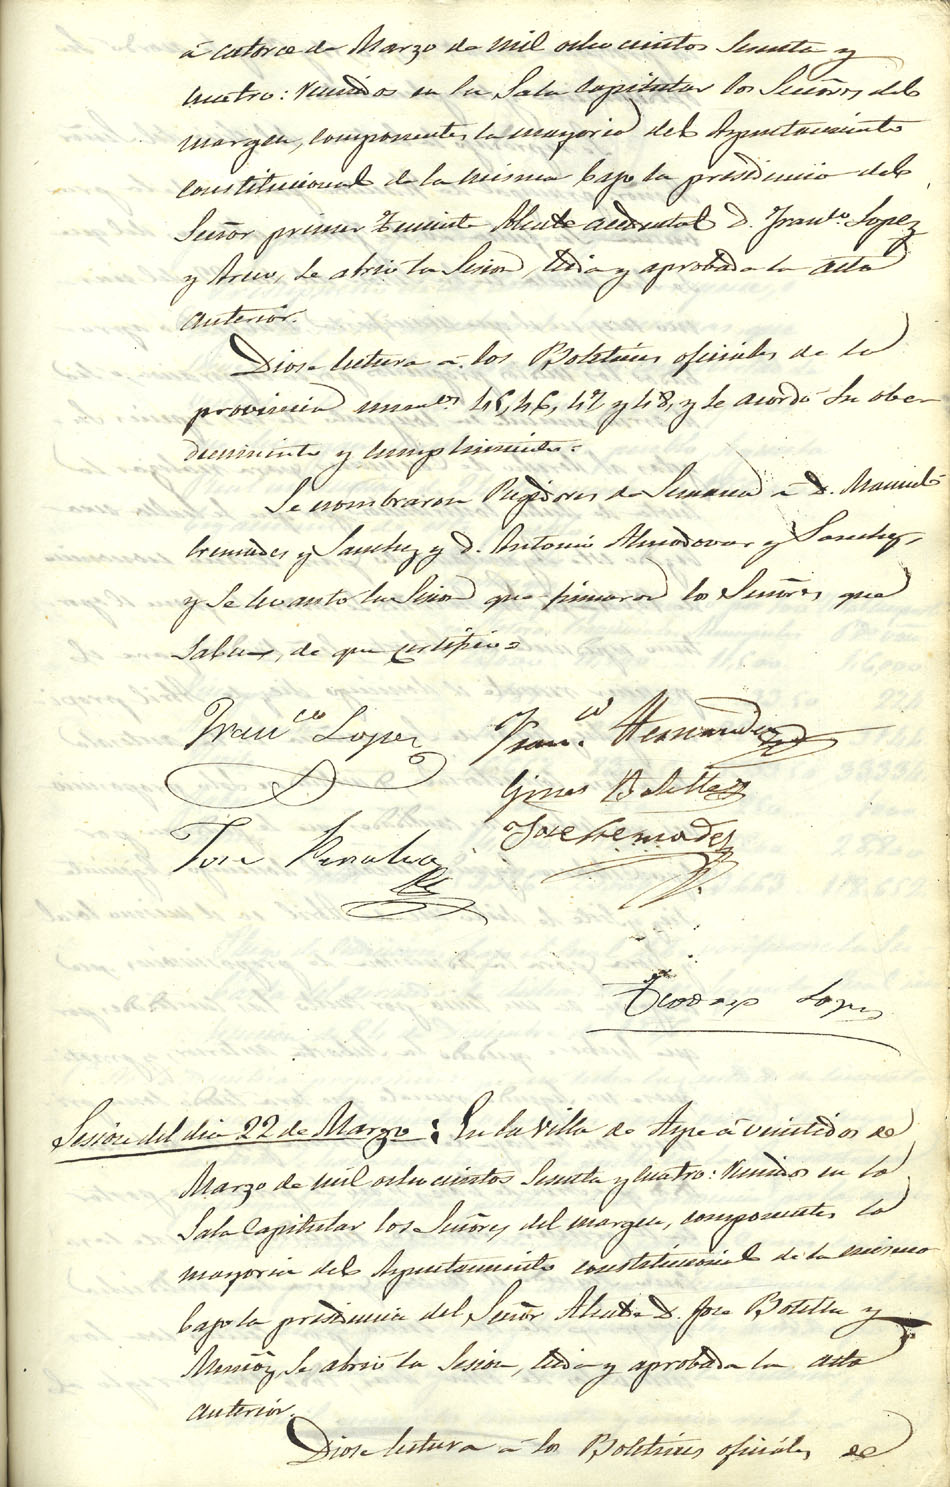 á catorce de Marzo de mil ochocientos sesenta y
cuatro: reunidos en la Sala Capitular los Señores del
margen, componentes la mayoria del Ayuntamiento
constitucional de la misma bajo la presidencia del
Señor primer Teniente Alcalde accidental D. Franco. Lopez
y se abrió la Sesion, leida y aprobada la acta
anterior.
Diose lectura á los Boletines oficiales de la
provincia numeros 45, 46, 47 y 48, y se acordó su obe-
decimiento y cumplimiento.
Se nombraron Regidores de Semana á D. Manuel
Cremades y Sanchez y D. Antonio Almodovar y Sanchez,
y se levantó la Sesion que firmaron los Señores que
saben, de que certifico
Franco Lopez
Franco. Hernandez
Gines Botella
Jose Cremades
Jose Penalva
Lopez
Sesion del dia 22 de Marzo: En la Villa de Aspe á veintidos de
Marzo de mil ochocientos sesenta y cuatro: reunidos en la
Sala Capitular los Señores del margen, componentes la
mayoria del Ayuntamiento constitucional de la misma
bajo la presidencia del Señor Alcalde D. Jose Botella y
Muñoz, se abrió la Sesion, leida y aprobada la acta
anterior.
Diose lectura á los Boletines oficiales de